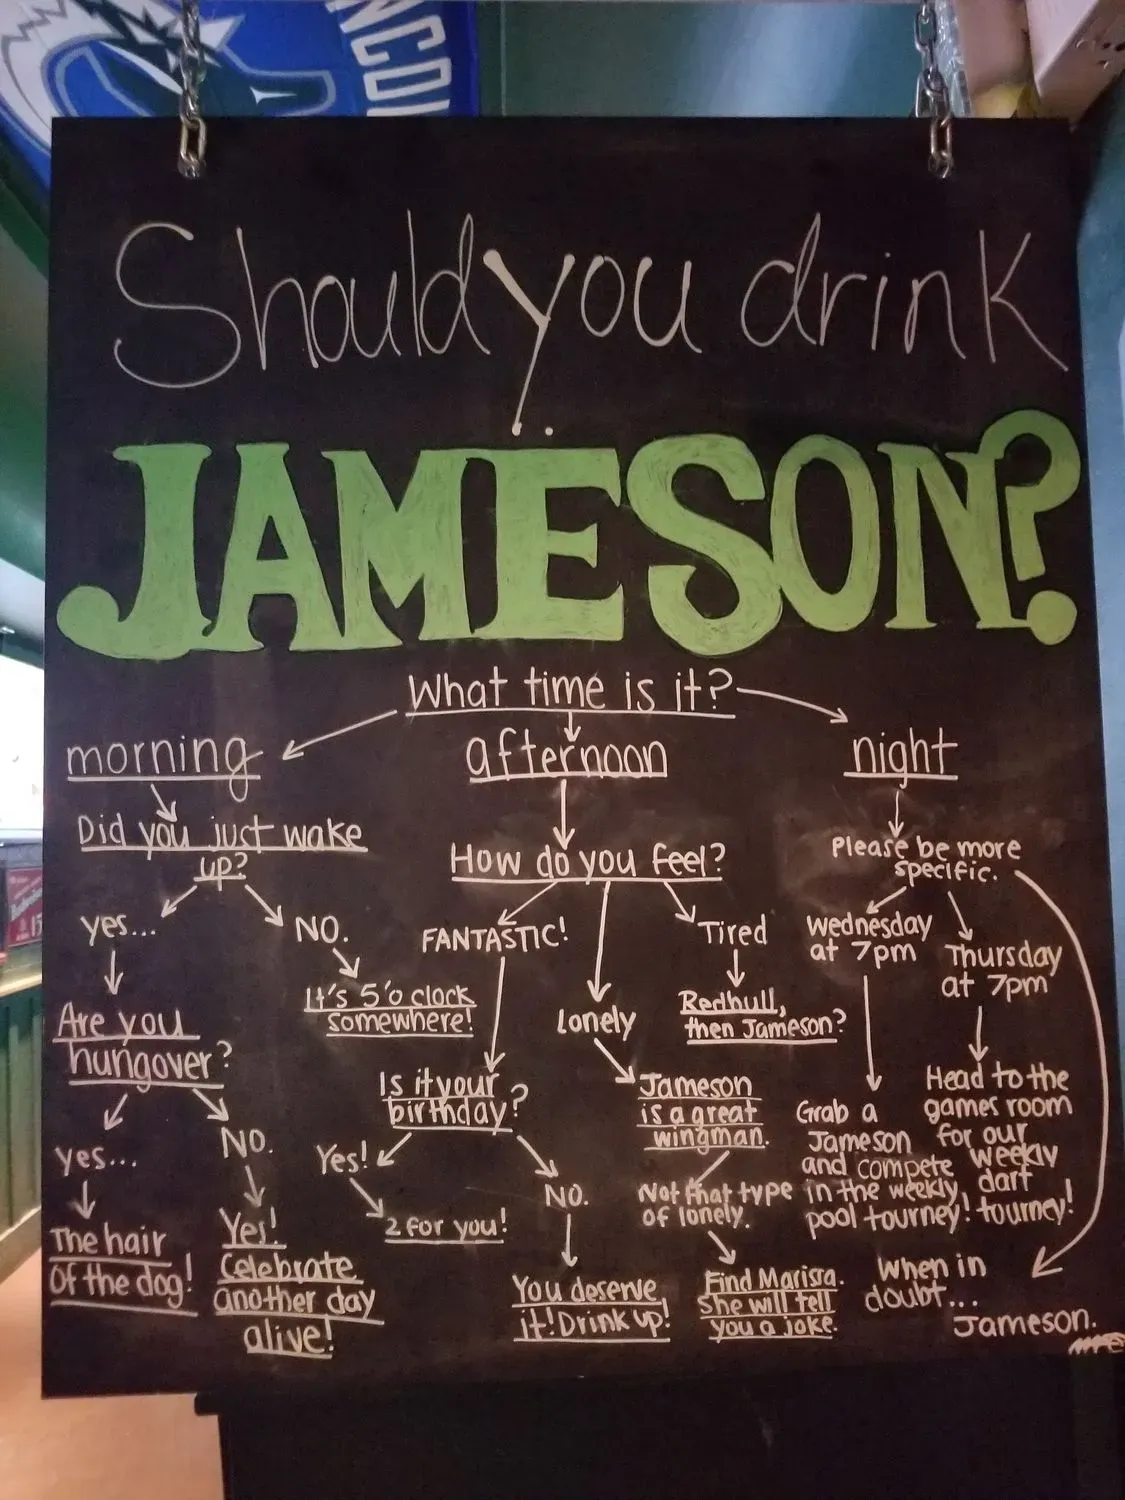 NCOU
Should you drink
JAMESON?
What time is it?
morning
afternoon
night
Did you just wake
up?
yes...
NO.
It's 5'o clock
somewhere!
Are you
hungover?
yes...
NO.
The hair
Of the dog!
Yes!
Celebrate
another day
alive!
How do you feel?
FANTASTIC!
lonely
Tired
Redbull,
then Jameson?
Is it your
birthday?
Yes!
NO.
2 for you!
You deserve
it! Drink up!
Jameson
is a great
wingman.
Not that type
of lonely.
Find Marisa.
She will tell
you a joke.
Please be more
specific.
Wednesday
at 7pm
Thursday
at 7pm
Grab a
Jameson
and compete
in the weekly
pool tourney!
Head to the
games room
for our
weekly
dart
tourney!
When in
doubt...
Jameson.